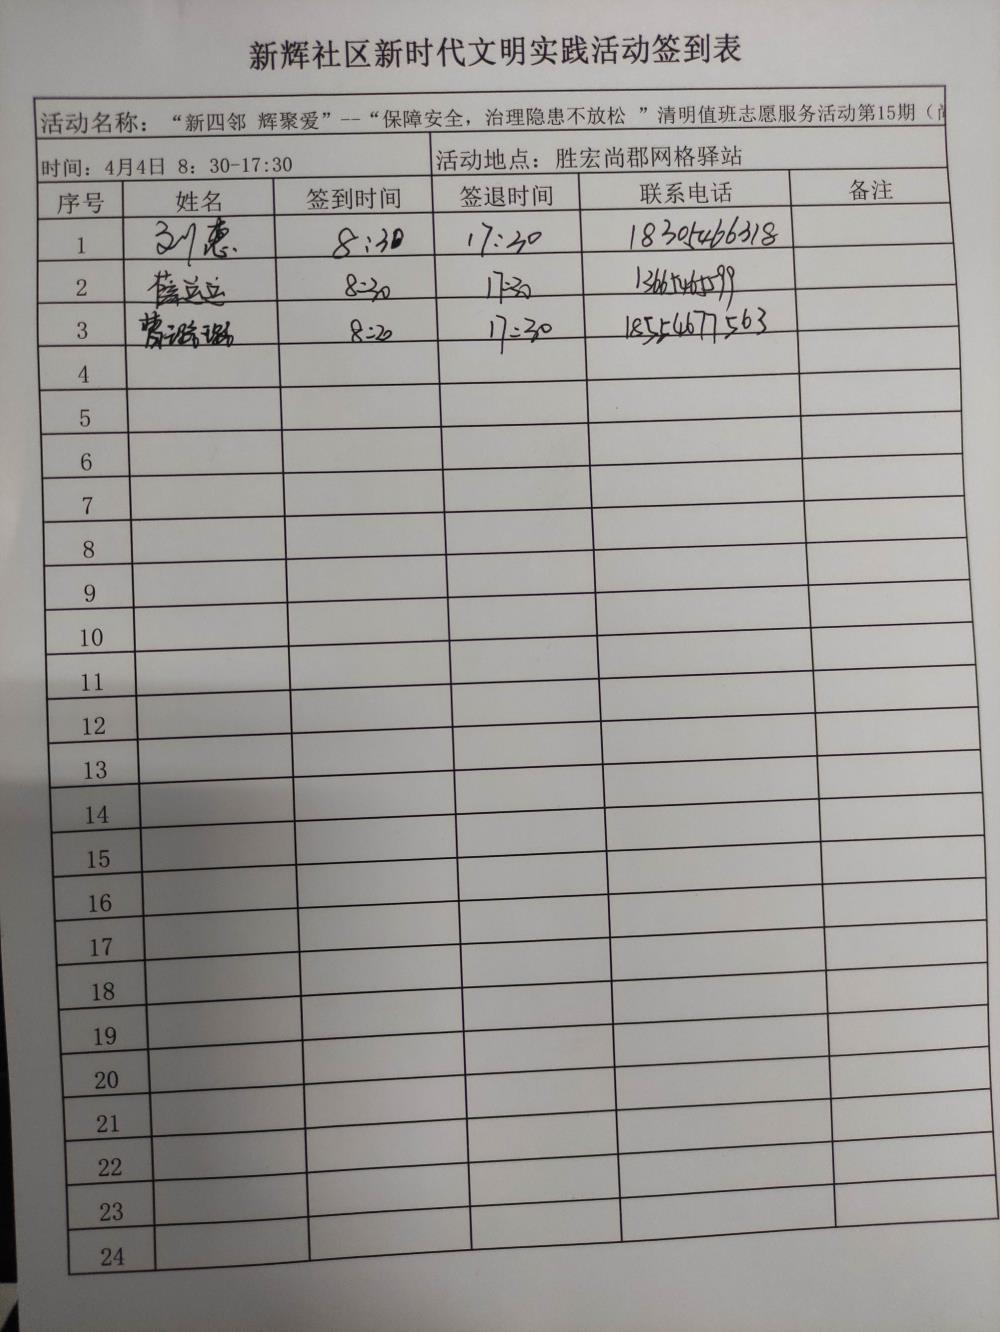 新辉社区新时代文明实践活动签到表
活动名称：“新四邻 辉聚爱”--“保障安全，治理隐患不放松 ”清明值班志愿服务活动第15期（尚
时间：4月4日 8：30-17:30 活动地点：胜宏尚郡网格驿站
序号 姓名 签到时间 签退时间 联系电话 备注
1 刘惠 8:30 17:30 18305466318
2 8:30 17:30 13665465599
3 8:20 17:30 18554677563
4
5
6
7
8
9
10
11
12
13
14
15
16
17
18
19
20
21
22
23
24